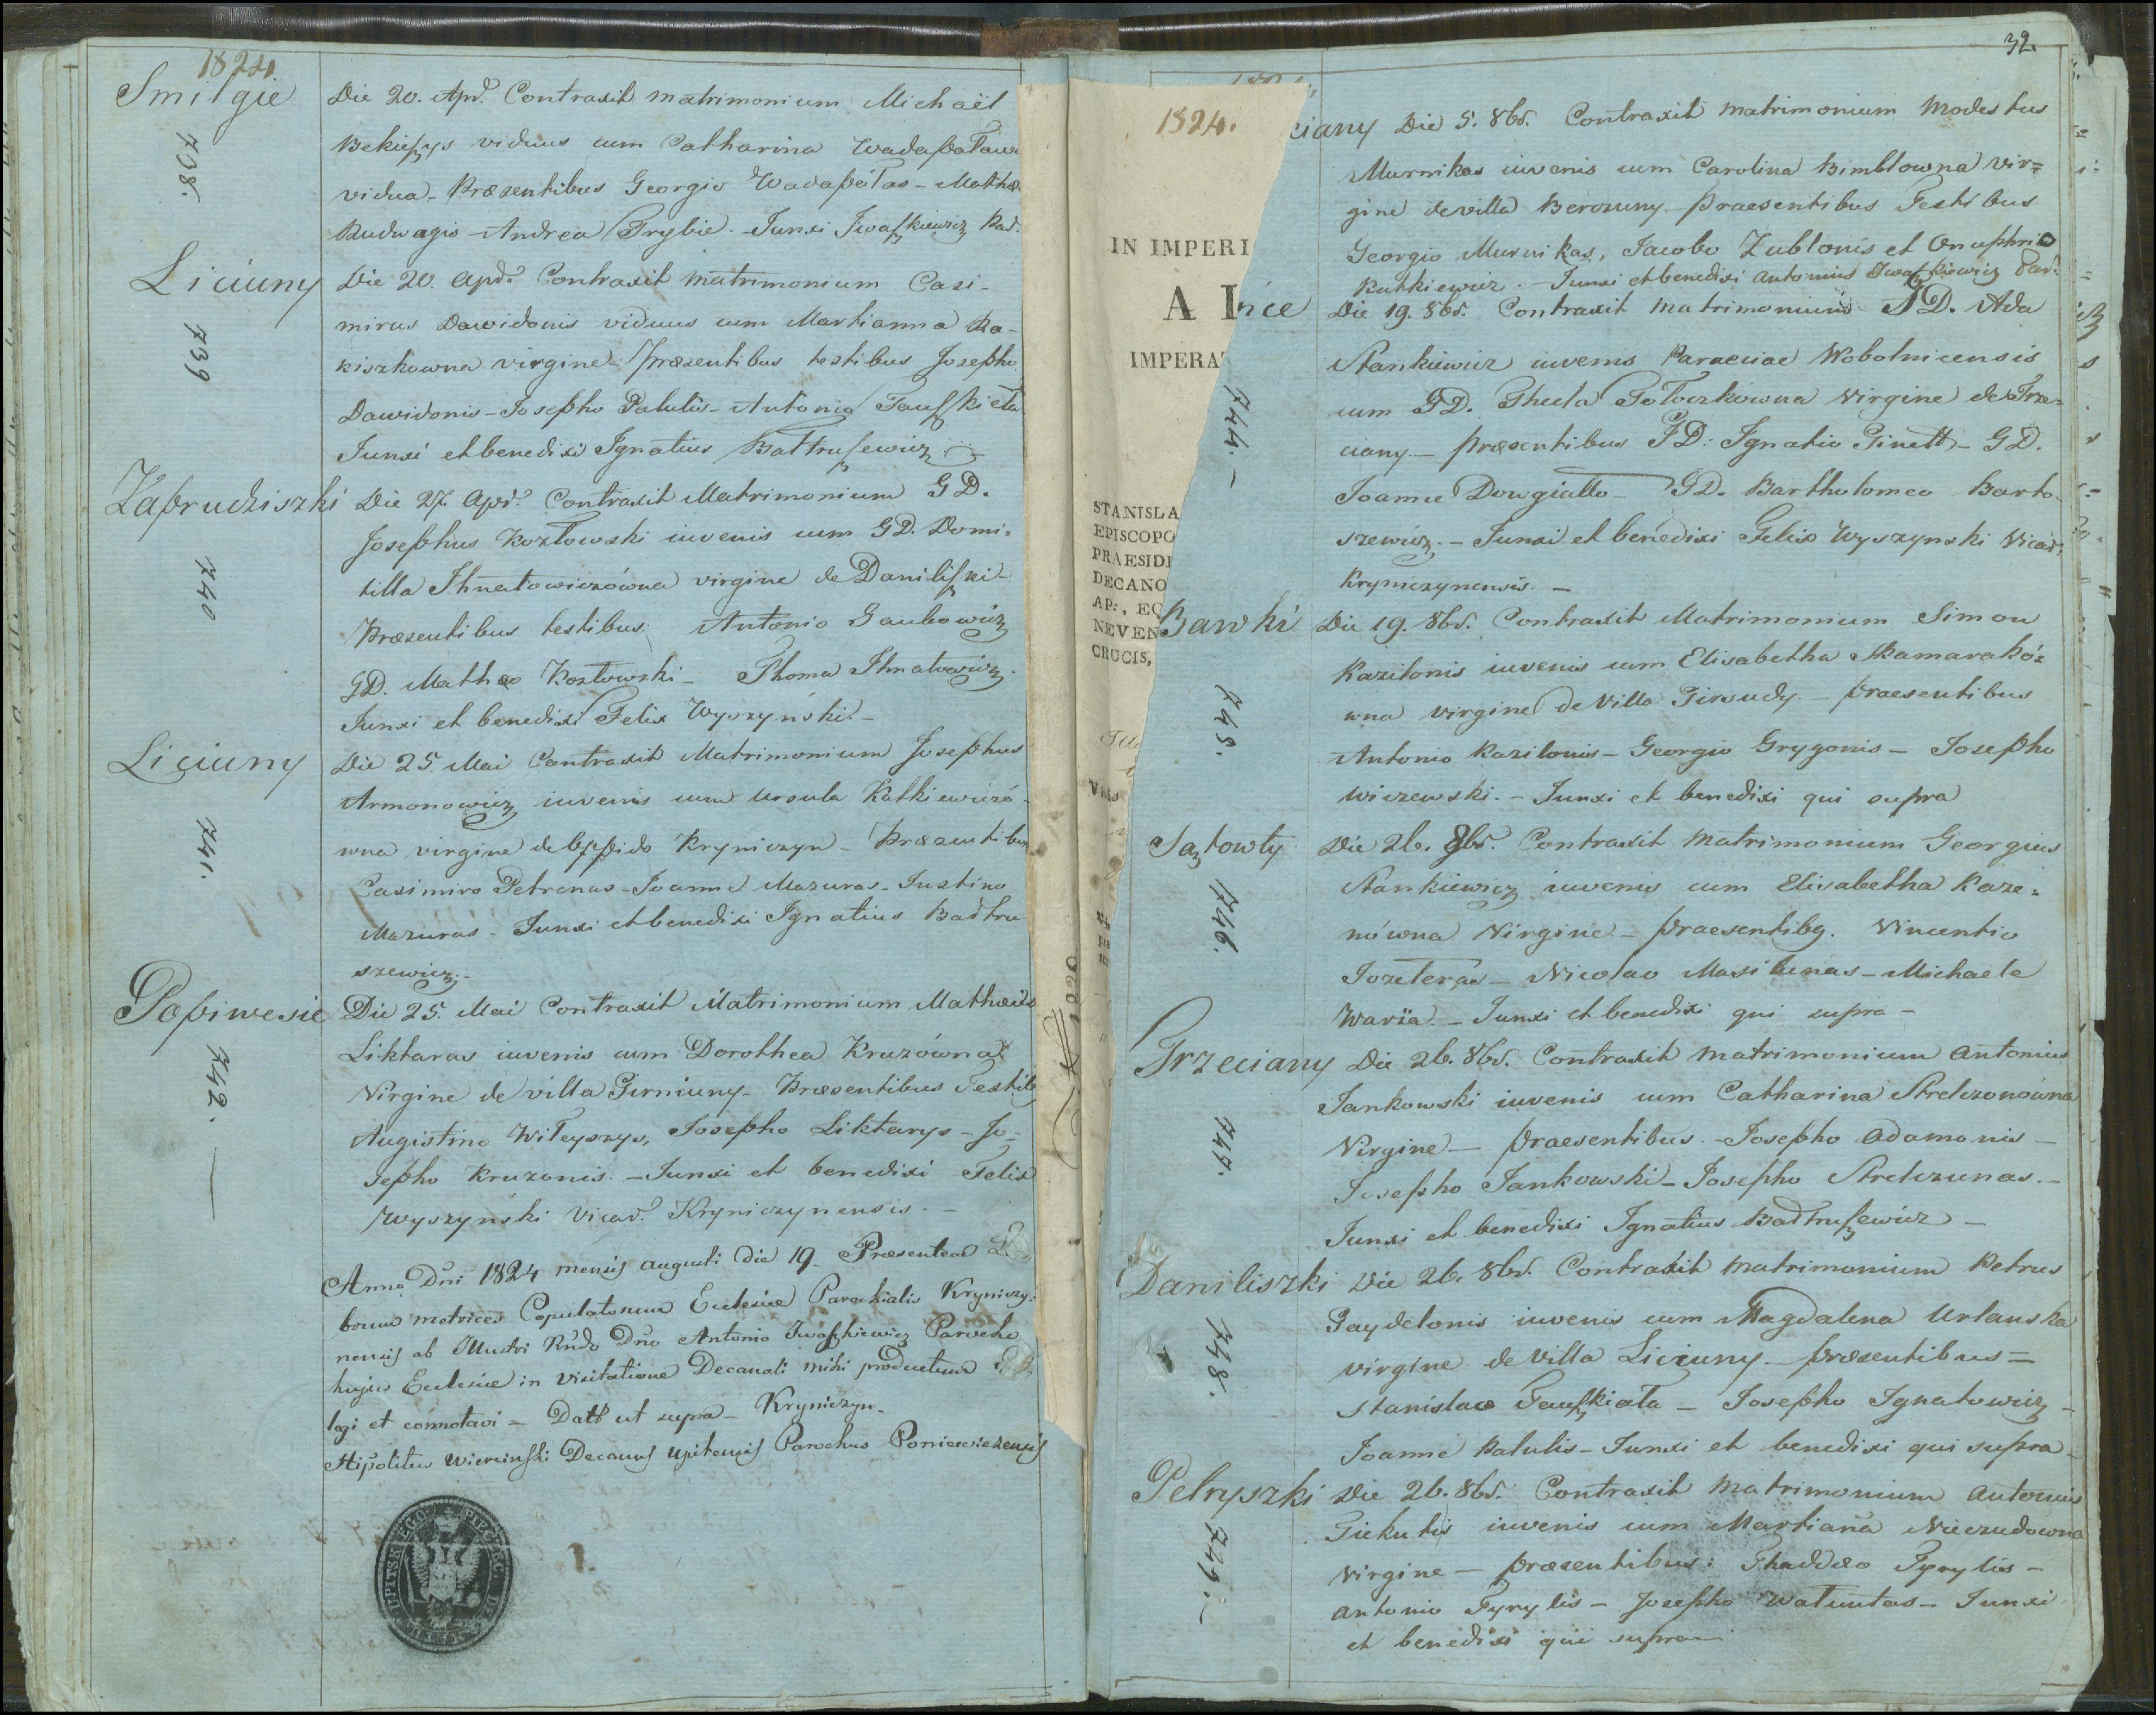 1824.
Smilgie
738.
Die 20. Apr. Contraxit matrimonium Michaël
viduus cum Catharina
vidua - Præsentibus Georgio Wadapałas - Mathæ
Rudwagis - Andrea Trybie. - Junxi Iwaszkiewicz Par.
Liciuny
739
Die 20. Apr. Contraxit Matrimonium Casi-
mirus Dawidonis viduus cum Martianna Ra-
kiszkowna virgine - Præsentibus testibus Josepho
Dawidonis - Josepho Palulis - Antonio
Junxi et benedixi Ignatius Bałtruszewicz
Zaprudziszki
740
Die 27. Apr. Contraxit Matrimonium GD.
Josephus Kozłowski iuvenis cum GD. Domi-
tilla Ihnatowiczówna virgine de Daniliszki -
Præsentibus testibus: Antonio Gaubowicz
GD. Mathæo Kozłowski - Thoma Ihnatowicz.
Junxi et benedixi Felix Wyszyński. -
Liciuny
741.
Die 25. Mai Contraxit Matrimonium Josephus
Armonowicz iuvenis cum Ursula Rutkiewiczó-
wna virgine de Oppido Kryniczyn - Præsentibus
Casimiro Petronas - Joanne Mazuras - Justino
Mazuras - Junxi et benedixi Ignatius Bałtru
szewicz. -
Popiwesie
742. -
Die 25. Mai Contraxit Matrimonium Mathæus
Liktaras iuvenis cum Dorothea Kruzówna
Virgine de villa Pirniuny - Præsentibus Testib
Augistino Wiłeyszys, Josepho Liktarys - Jo-
sepho Kruzonis. - Junxi et benedixi Felix
Wyszyński Vicar. Kryniczynensis. -
Anno Dni 1824 mensis Augusti die 19. Præsentem
brum metrices Copulatorum Ecclesiæ Parochialis Kryniczy:
nensis ab Illustri Rndo Dno Antonio Iwaszkiewicz Parocho
hujus Ecclesiæ in Visitatione Decanali mihi productum
legi et connotavi - Datt ut supra - Kryniczyn.
Hipolitus Wiercinski Decanus Upitensis Parochus Poniewiezensis
PIECZĘC
UPITSKIEGO
32.
1824.
IN IMPERI
A I
IMPERA
STANISLA
EPISCOPO
PRAESIDI
DECANO
AP:, EQ
NEVEN
CRUCIS,
ciany
Die 5. 8br. Contraxit Matrimonium Modestus
Murnikas iuvenis cum Carolina Bimblowna vir=
gine de villa Berozuny - praesentibus Testibus
Georgio Murnikas, Jacobo Zublonis et Onuphrio
Rutkiewicz. - Junxi et benedixi Antonius Iwaszkiewicz Par.
744. -
Die 19. 8br. Contraxit Matrimonium GD. Ada
Stankiewicz iuvenis Paraeciae Wobolnicensis
cum GD. Thecla Połoczkówna Virgine de Trze-
ciany - præsentibus GD: Ignatio Pinett - GD.
Joanne Dowgiałło - GD. Bartholomeo Barto-
szewicz. - Junxi et benedixi Felix Wyszynski Vicar:
Kryniczynensis. -
Bawki
745.
Die 19. 8br. Contraxit Matrimonium Simon
Kazilonis iuvenis cum Elisabetha Skamarakó=
wna virgine de Villa Pirsudy - praesentibus
Antonio Kazilonis - Georgio Grygonis - Josepho
Wiczewski. - Junxi et benedixi qui supra
746.
Die 26. 8br. Contraxit Matrimonium Georgius
Stankiewicz iuvenis cum Elisabetha Kaze=
nówna Virgine - praesentibq. Vincentio
Jozeteras - Nicolao Masilunas - Michaele
Warża. - Junxi et benedixi qui supra -
Trzeciany
747.
Die 26. 8br. Contraxit Matrimonium Antonius
Jankowski iuvenis cum Catharina Strelczonówna
Virgine - praesentibus - Josepho Adamonis -
Josepho Jankowski - Josepho Strelczunas. -
Junxi et benedixi Ignatius Bałtruszewicz -
Daniliszki
748.
Die 26. 8br. Contraxit Matrimonium Petrus
Gaydelonis iuvenis cum Magdalena Urlanska
virgine de Villa Liciuny - præsentibus =
Stanislao Tauszkiała - Josepho Ignatowicz -
Joanne Palulis - Junxi et benedixi qui supra -
Petryszki
749. -
Die 26. 8br. Contraxit Matrimonium Antonius
Piekutis iuvenis cum Martiana Nieczudówna
Virgine - praesentibus: Thaddæo Tyrylis -
Antonio Tyrylis - Josepho Watuntas - Junxi
et benedixi qui supra